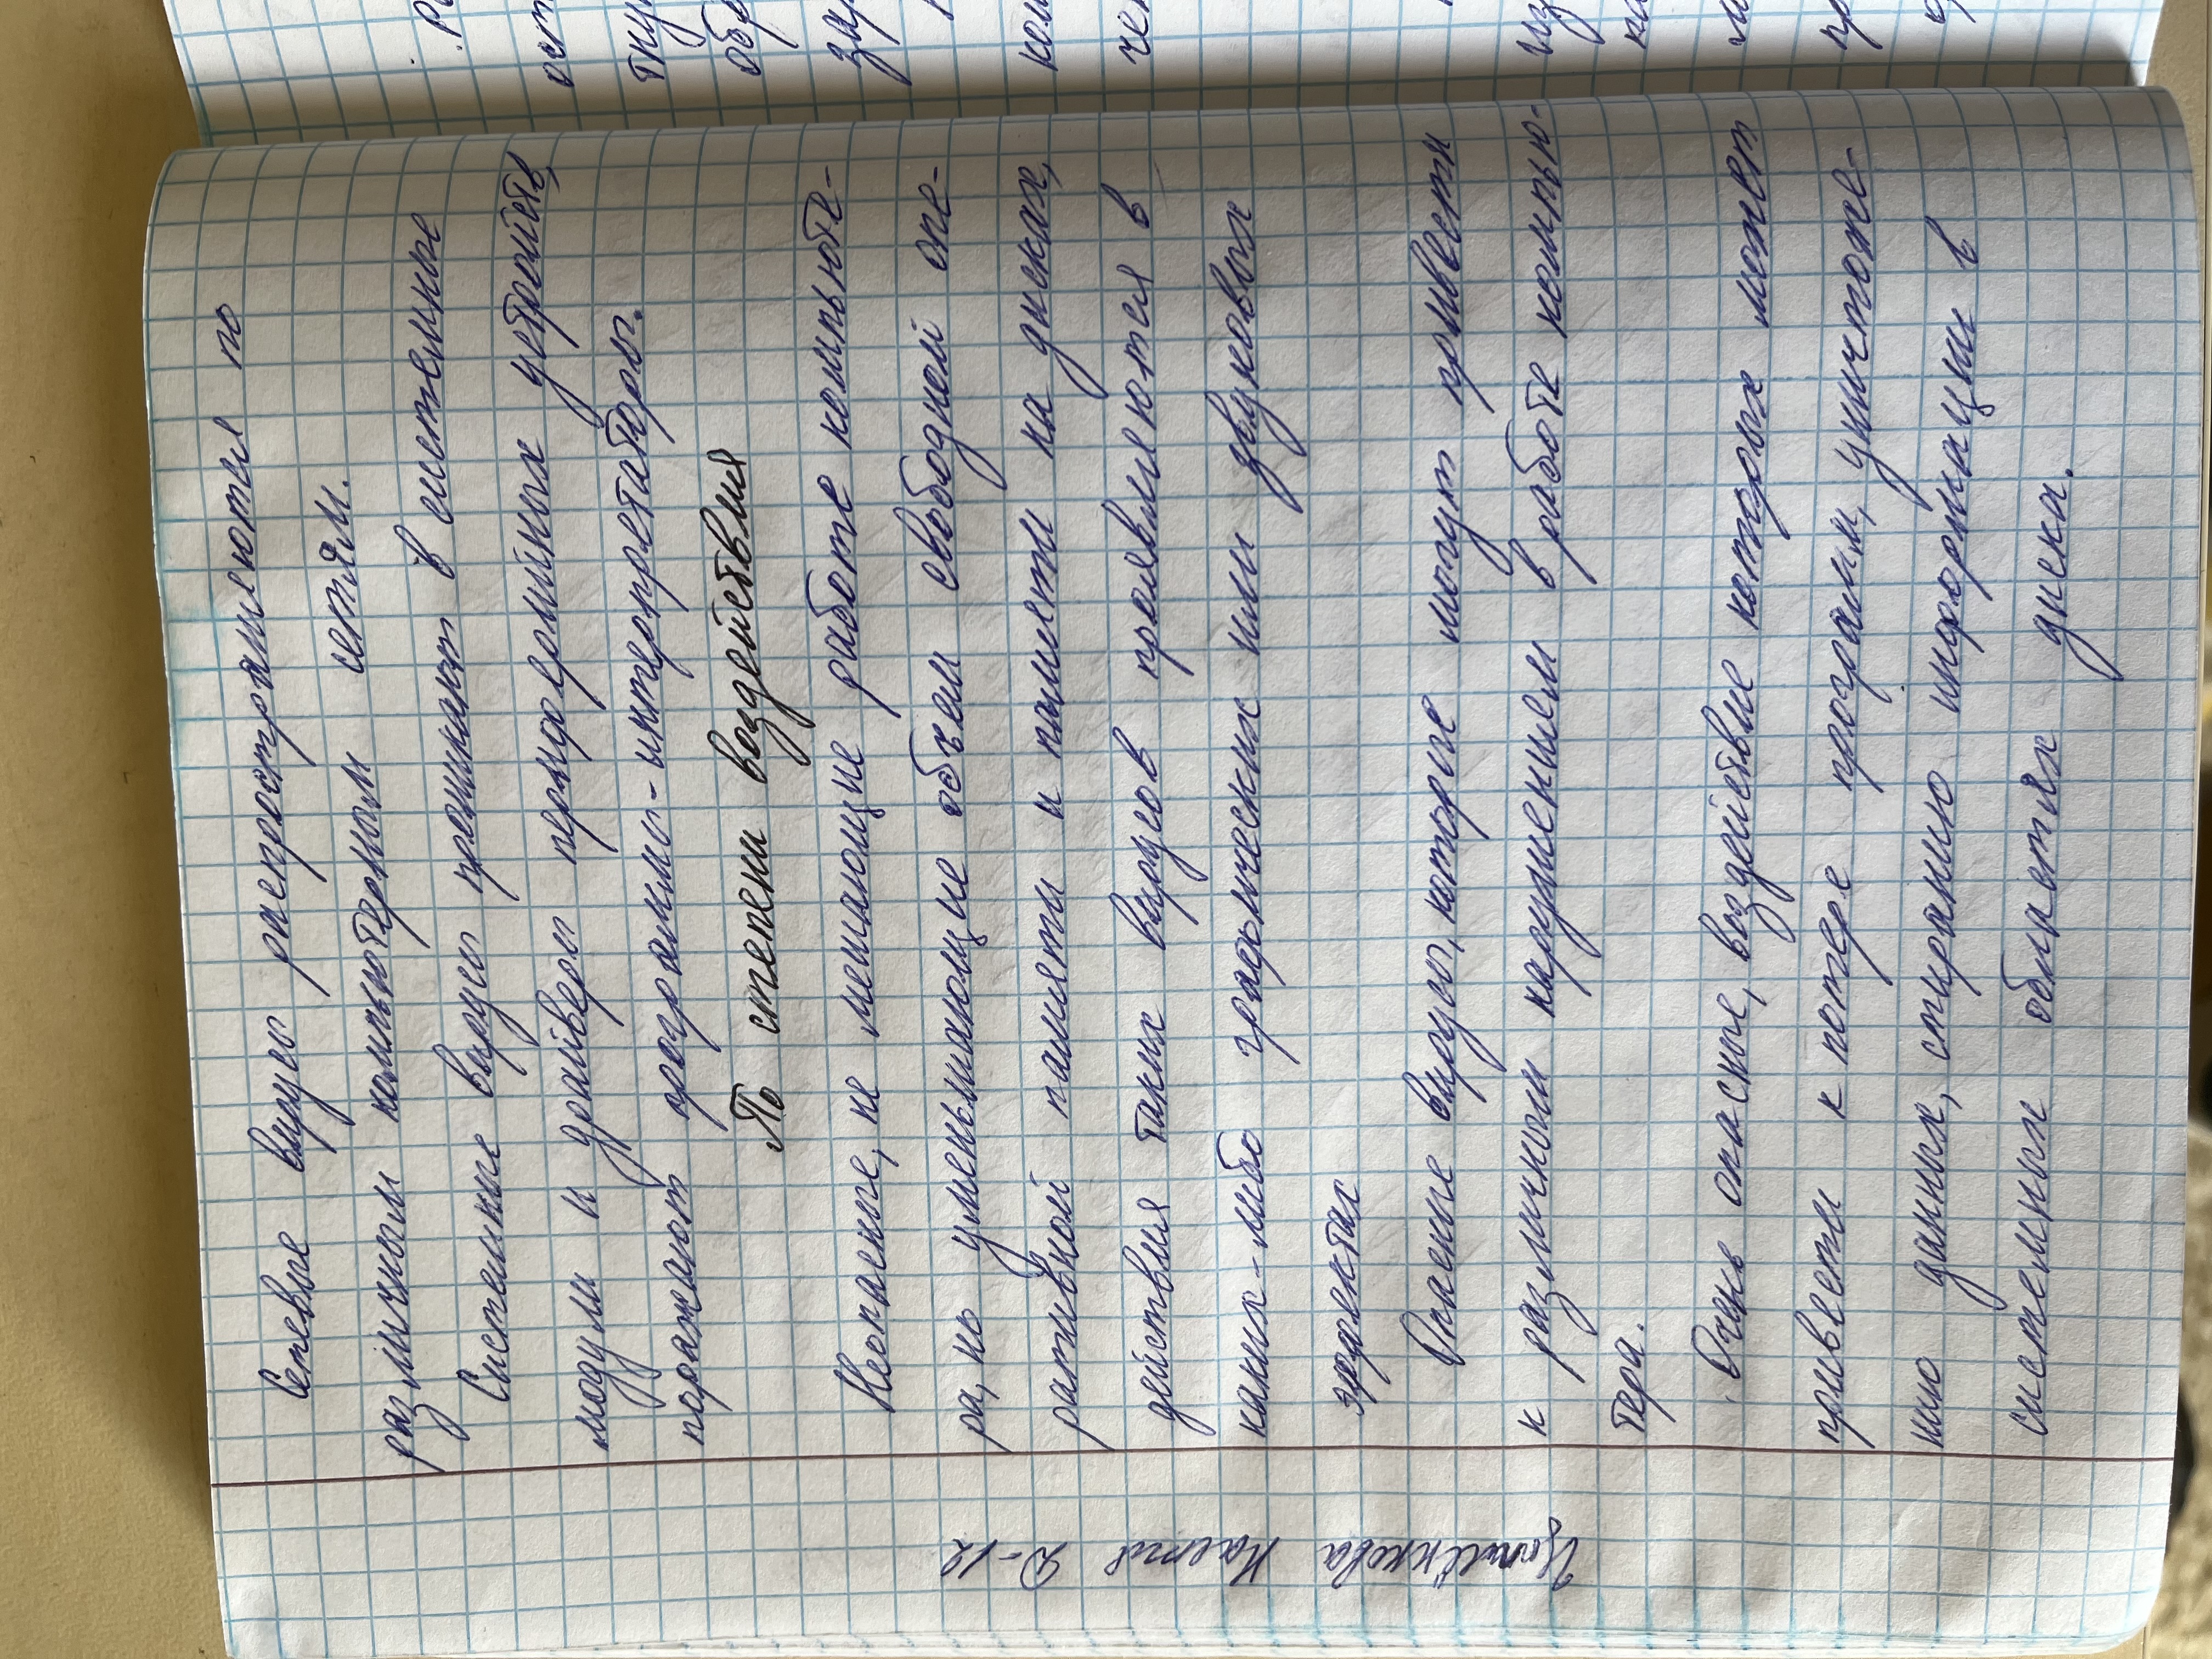 Сетевые вирусы распространяются по
различным компьютерным сетям.
Системные вирусы проникают в системные
модули и драйверы периферийных устройств,
поражают программы-интерпретаторы.
По степени воздействия
Неопасные, не мешающие работе компьюте-
ра, но уменьшающие объем свободной опе-
ративной памяти и памяти на дисках,
действия таких вирусов проявляются в
каких-либо графических или звуковых
эффектах
Опасные вирусы, которые могут привести
к различным нарушениям в работе компью-
тера.
Очень опасные, воздействие которых может
привести к потере программ, уничтоже-
нию данных, стиранию информации в
системных областях диска.
Настя Д-12